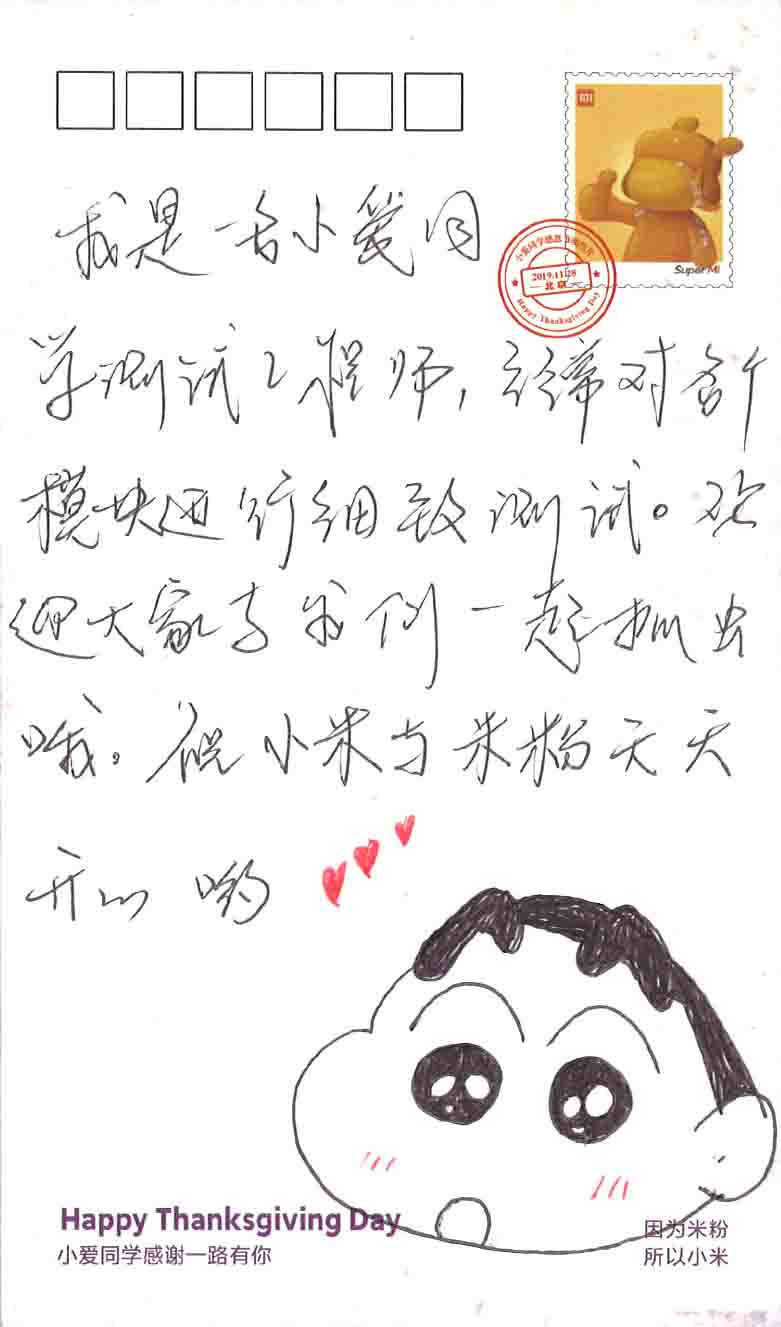 Super Mi
小爱同学感恩节明信片
2019.11.28
北京
Happy Thanksgiving Day
我是一名小爱同
学测试工程师，经常对各个
模块进行细致测试。欢
迎大家与我们一起抓虫
哦。祝小米与米粉天天
开心哟
Happy Thanksgiving Day
小爱同学感谢一路有你
因为米粉
所以小米